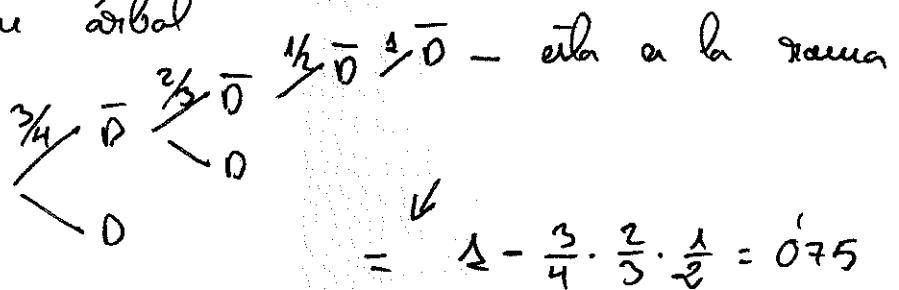 u árbol
3/4 D̅ 2/3 D̅ 1/2 D̅ 1 D̅ — esta es la rama
D
D
= 1 - 3/4 · 2/3 · 1/2 = 0'75